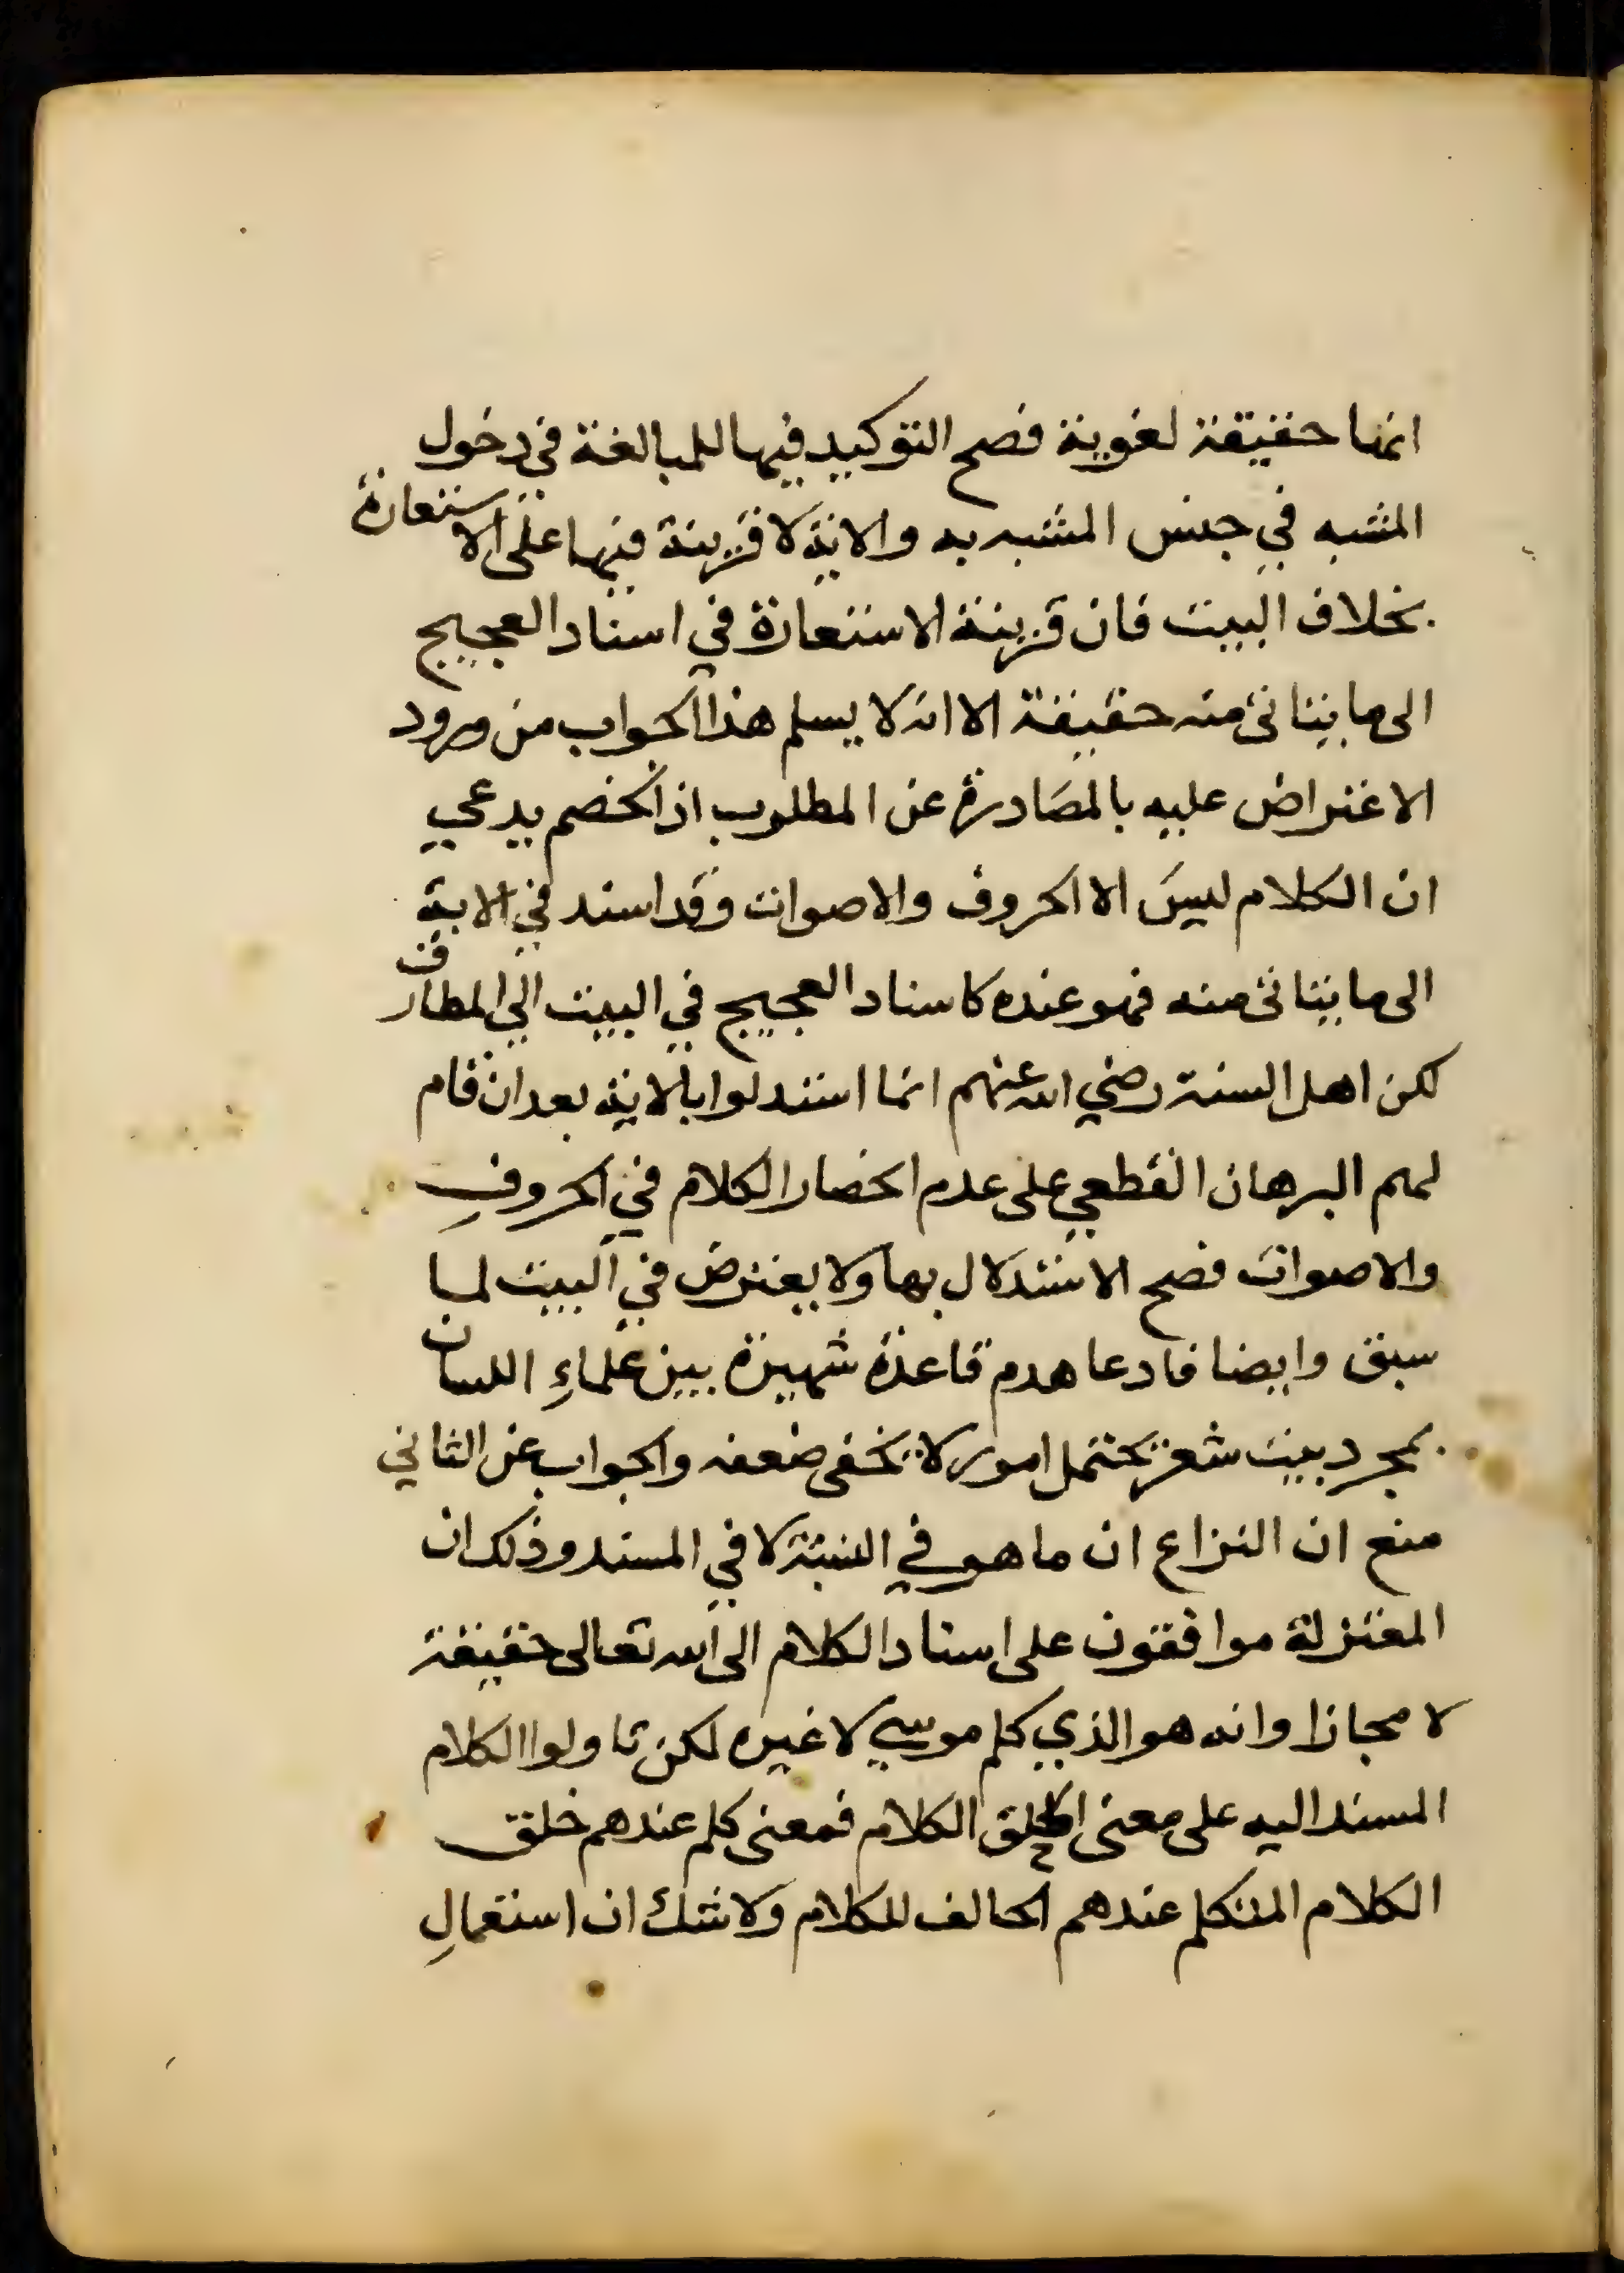 انها حقيقة لغوية فصح التوكيد فيها للمبالغة في دخول
المشبه في جنس المشبه به والاية لا قرينة فيها على الاستعارة
بخلاف البيت فان قرينة الاستعارة في اسناد العجيج
الى ما يتاتى منه حقيقة الا انه لا يسلم هذا الجواب من ورود
الاعتراض عليه بالمصَادرة عن المطلوب اذ الخصم يدعي
ان الكلام ليسَ الا الحروف والاصوات وقد اسند في الاية
الى ما يتاتى منه فهو عنده كاسناد العجيج في البيت الي المطارف
لكن اهل السنة رضي الله عنهم انما استدلوا بالاية بعد ان قام
لهم البرهان القطعي على عدم انحصار الكلام في الحروفِ
والاصوات فصح الاستدلال بها ولا يعترض في البيت لما
سبق وايضا فادعا هدم قاعدة شهيرة بين علماءِ اللسان
بمجرد بيت شعر يحتمل امور لا يخفى ضعفه والجواب عن الثاني
منع ان النزاع ان ما هو في النسبة لا في المسند وذلك ان
المعتزلة موافقون على اسناد الكلام الى الله تعالى حقيقة
لا مجازا وانه هو الذي كلم موسي لا غيره لكن تاولوا الكلام
المسند اليه على معنى الخلق الكلام فمعنى كلم عندهم خلق
الكلام المتكلم عندهم الخالف للكلام ولا شك ان استعمالِ